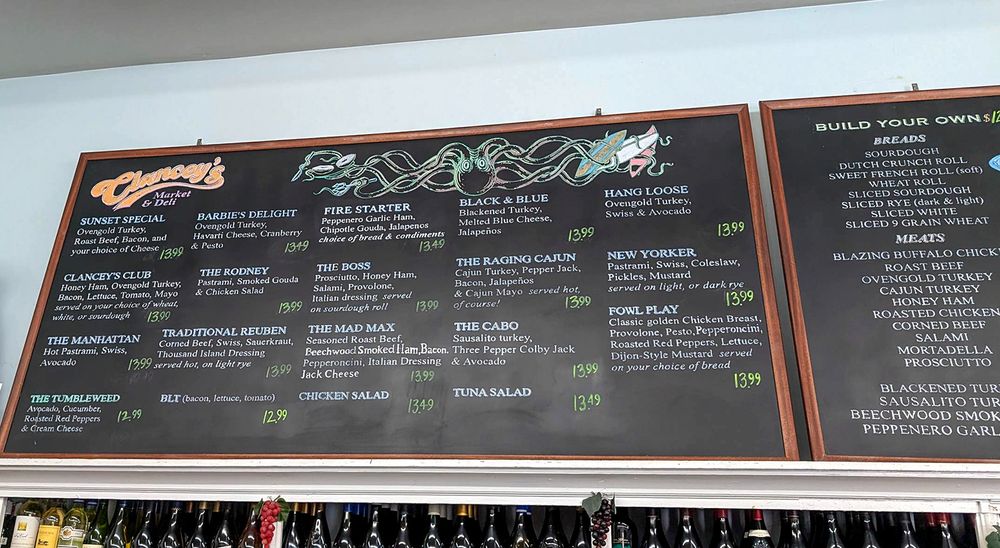 Clancey's
Market
& Deli
SUNSET SPECIAL
Ovengold Turkey,
Roast Beef, Bacon, and
your choice of Cheese 13.99
BARBIE'S DELIGHT
Ovengold Turkey,
Havarti Cheese, Cranberry
& Pesto 13.49
FIRE STARTER
Peppenero Garlic Ham,
Chipotle Gouda, Jalapenos
choice of bread & condiments
13.49
BLACK & BLUE
Blackened Turkey,
Melted Blue Cheese,
Jalapeños 13.99
HANG LOOSE
Ovengold Turkey,
Swiss & Avocado
13.99
CLANCEY'S CLUB
Honey Ham, Ovengold Turkey,
Bacon, Lettuce, Tomato, Mayo
served on your choice of wheat,
white, or sourdough 13.99
THE RODNEY
Pastrami, Smoked Gouda
& Chicken Salad
13.99
THE BOSS
Prosciutto, Honey Ham,
Salami, Provolone,
Italian dressing served
on sourdough roll 13.99
THE RAGING CAJUN
Cajun Turkey, Pepper Jack,
Bacon, Jalapeños
& Cajun Mayo served hot,
of course! 13.99
NEW YORKER
Pastrami, Swiss, Coleslaw,
Pickles, Mustard
served on light, or dark rye
13.99
THE MANHATTAN
Hot Pastrami, Swiss,
Avocado 13.99
TRADITIONAL REUBEN
Corned Beef, Swiss, Sauerkraut,
Thousand Island Dressing
served hot, on light rye 13.99
THE MAD MAX
Seasoned Roast Beef,
Beechwood Smoked Ham, Bacon.
Pepperoncini, Italian Dressing
Jack Cheese 13.99
THE CABO
Sausalito turkey,
Three Pepper Colby Jack
& Avocado 13.99
FOWL PLAY
Classic golden Chicken Breast,
Provolone, Pesto, Pepperoncini,
Roasted Red Peppers, Lettuce,
Dijon-Style Mustard served
on your choice of bread
13.99
THE TUMBLEWEED
Avocado, Cucumber,
Roasted Red Peppers
& Cream Cheese 12.99
BLT (bacon, lettuce, tomato)
12.99
CHICKEN SALAD
13.49
TUNA SALAD
13.49
BUILD YOUR OWN $12
BREADS
SOURDOUGH
DUTCH CRUNCH ROLL
SWEET FRENCH ROLL (soft)
WHEAT ROLL
SLICED SOURDOUGH
SLICED RYE (dark & light)
SLICED WHITE
SLICED 9 GRAIN WHEAT
MEATS
BLAZING BUFFALO CHICK
ROAST BEEF
OVENGOLD TURKEY
CAJUN TURKEY
HONEY HAM
ROASTED CHICKEN
CORNED BEEF
SALAMI
MORTADELLA
PROSCIUTTO
BLACKENED TUR
SAUSALITO TUR
BEECHWOOD SMOK
PEPPENERO GARL